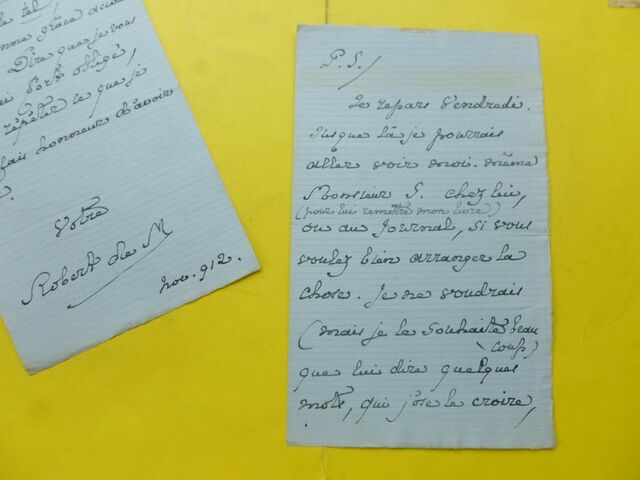 tel,
me grâce
Dire que je vous
fort obligé,
répéter ce que je
fais honneur d'avoir
Votre
Robert de M
nov. 912.
P. S./
Je repars Vendredi.
Jusque là je pourrais
aller voir moi-même
Monsieur S. chez lui,
(pour lui remettre mon livre)
ou au Journal, si vous
voulez bien arranger la
chose. Je ne voudrais
(mais je le souhaite beau
coup)
que lui dire quelques
mots, qui j'ose le croire,